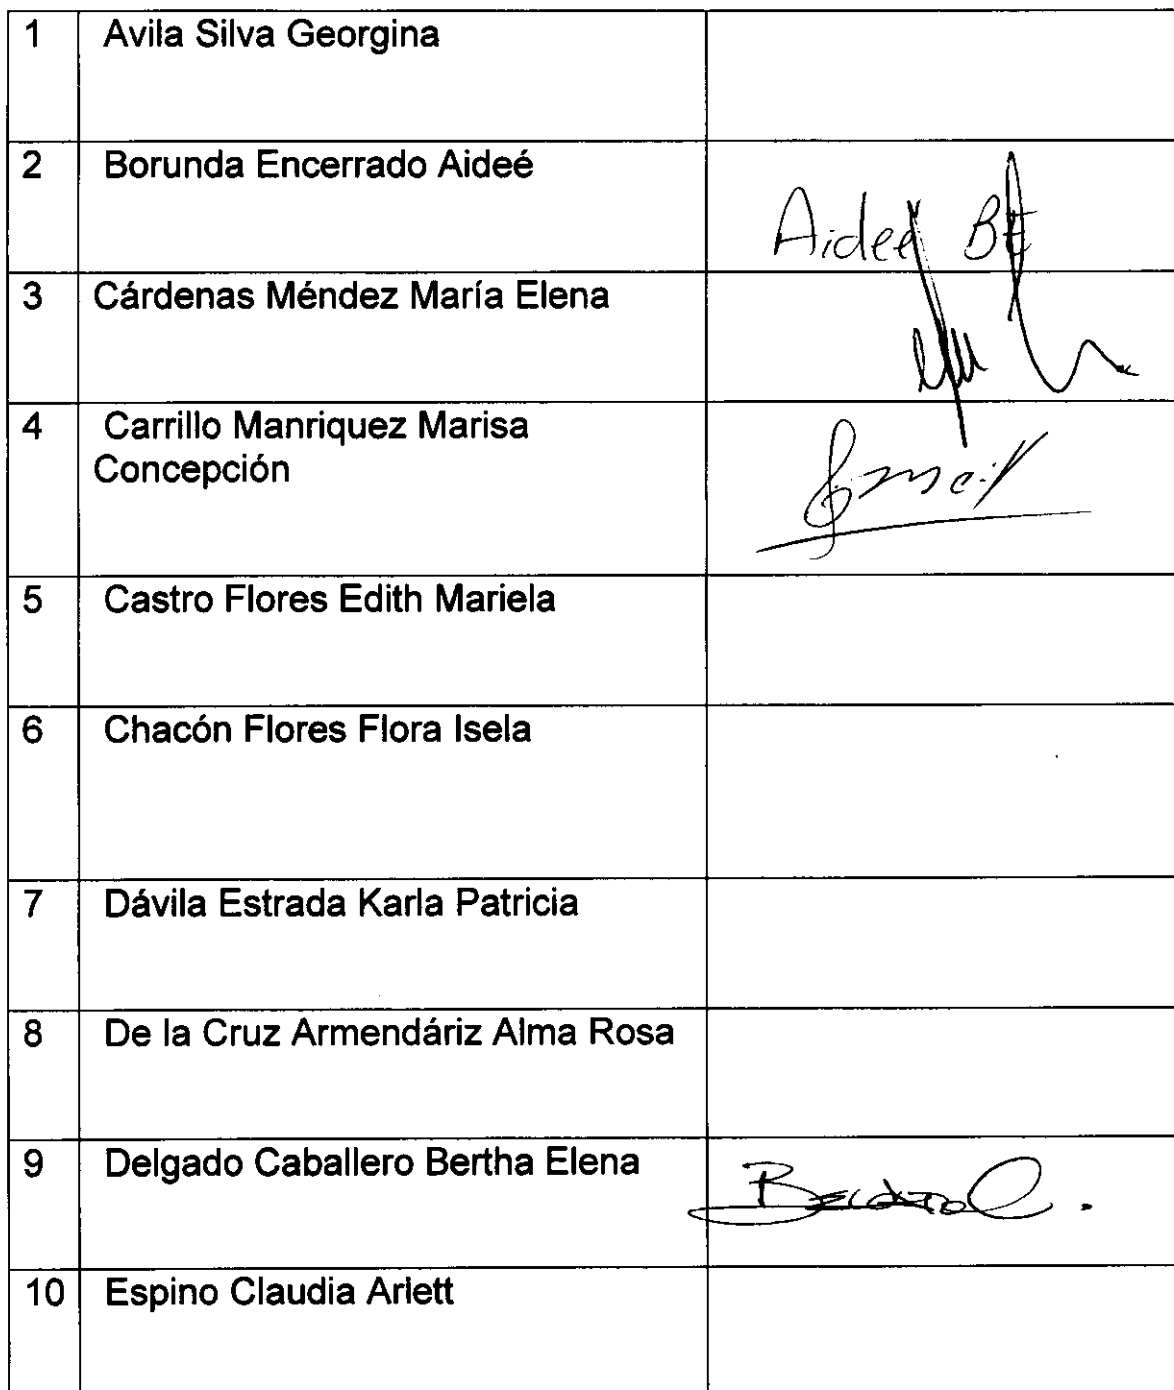 1 Avila Silva Georgina
2 Borunda Encerrado Aideé
Aideé BE
3 Cárdenas Méndez María Elena
4 Carrillo Manriquez Marisa
Concepción
5 Castro Flores Edith Mariela
6 Chacón Flores Flora Isela
7 Dávila Estrada Karla Patricia
8 De la Cruz Armendáriz Alma Rosa
9 Delgado Caballero Bertha Elena
10 Espino Claudia Arlett